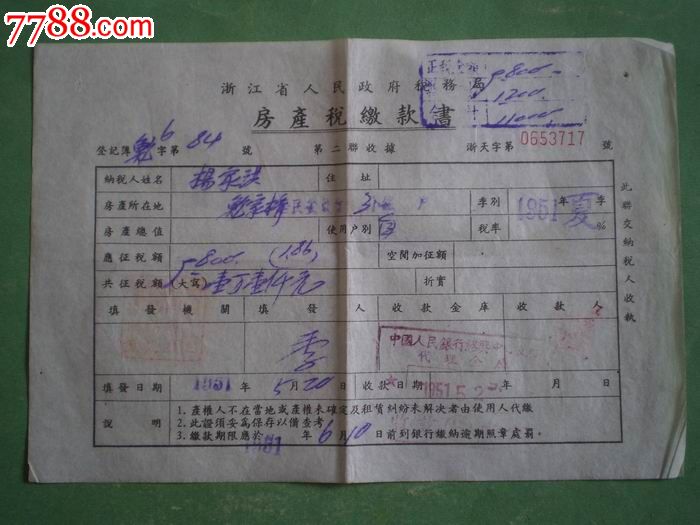 7788.com
浙江省人民政府稅務局
房產稅繳款書
正稅
9800
1200
11000
登記簿 字第 6 84 號 第二聯收據 浙天字第 0653717 號
納稅人姓名 楊 住址
房產所在地 季別 1951年夏季
房產總值 使用戶別 自 稅率 %
應征稅額 9800 (1.86) 空閒加征額
共征稅額(大寫) 壹万壹仟元 折實
填發機關 填發人 收款金庫 收款人
李 中國人民銀行
代理
填發日期 1951年5月20日 收款日期 1951.5.2 年月日
說明
1.產權人不在當地或產權未確定及租賃糾紛未解决者由使用人代繳
2.此證須妥爲保存以備查考
3.繳款期限應於1951年6月10日前到銀行繳納逾期照章處罰。
此聯交納稅人收執